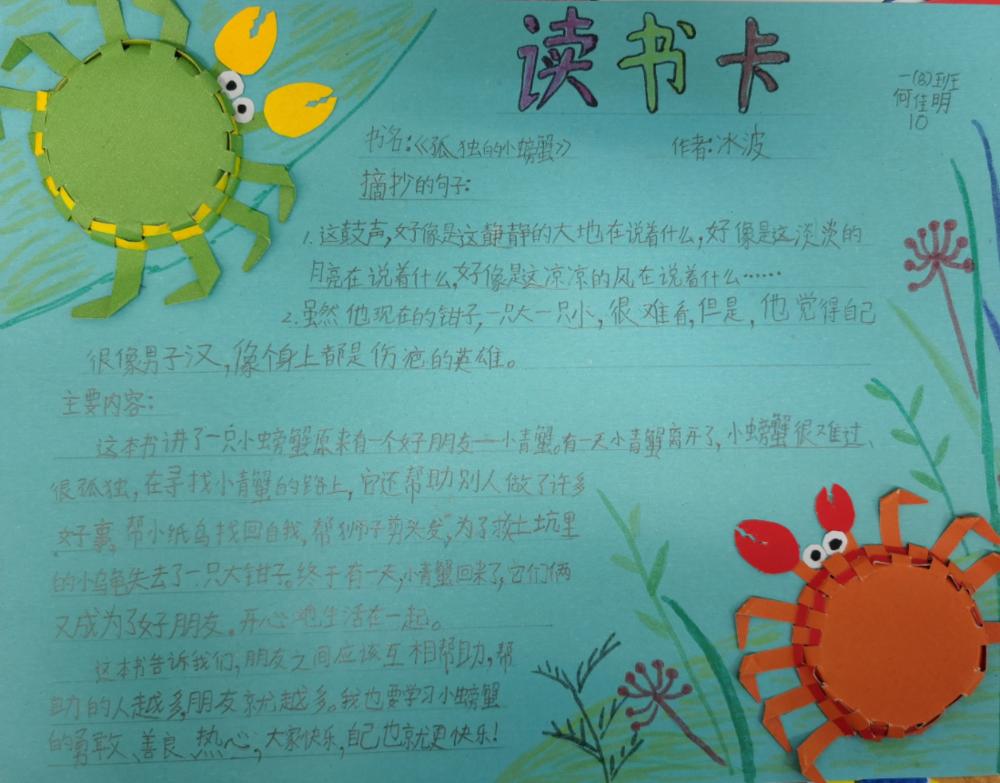 读书卡
一(8)班
何佳明
10
书名:《孤独的小螃蟹》 作者:冰波
摘抄的句子:
1.这鼓声,好像是这静静的大地在说着什么,好像是这淡淡的
月亮在说着什么,好像是这凉凉的风在说着什么……
2.虽然他现在的钳子,一只大一只小,很难看,但是,他觉得自己
很像男子汉,像个身上都是伤疤的英雄。
主要内容:
这本书讲了一只小螃蟹原来有一个好朋友——小青蟹。有一天小青蟹离开了,小螃蟹很难过、
很孤独,在寻找小青蟹的路上,它还帮助别人做了许多
好事。帮小纸鸟找回自我,帮狮子剪头发,为了救土坑里
的小乌龟失去了一只大钳子。终于有一天,小青蟹回来了,它们俩
又成为了好朋友。开心地生活在一起。
这本书告诉我们,朋友之间应该互相帮助,帮
助的人越多,朋友就越多。我也要学习小螃蟹
的勇敢、善良、热心,大家快乐,自己也就更快乐!